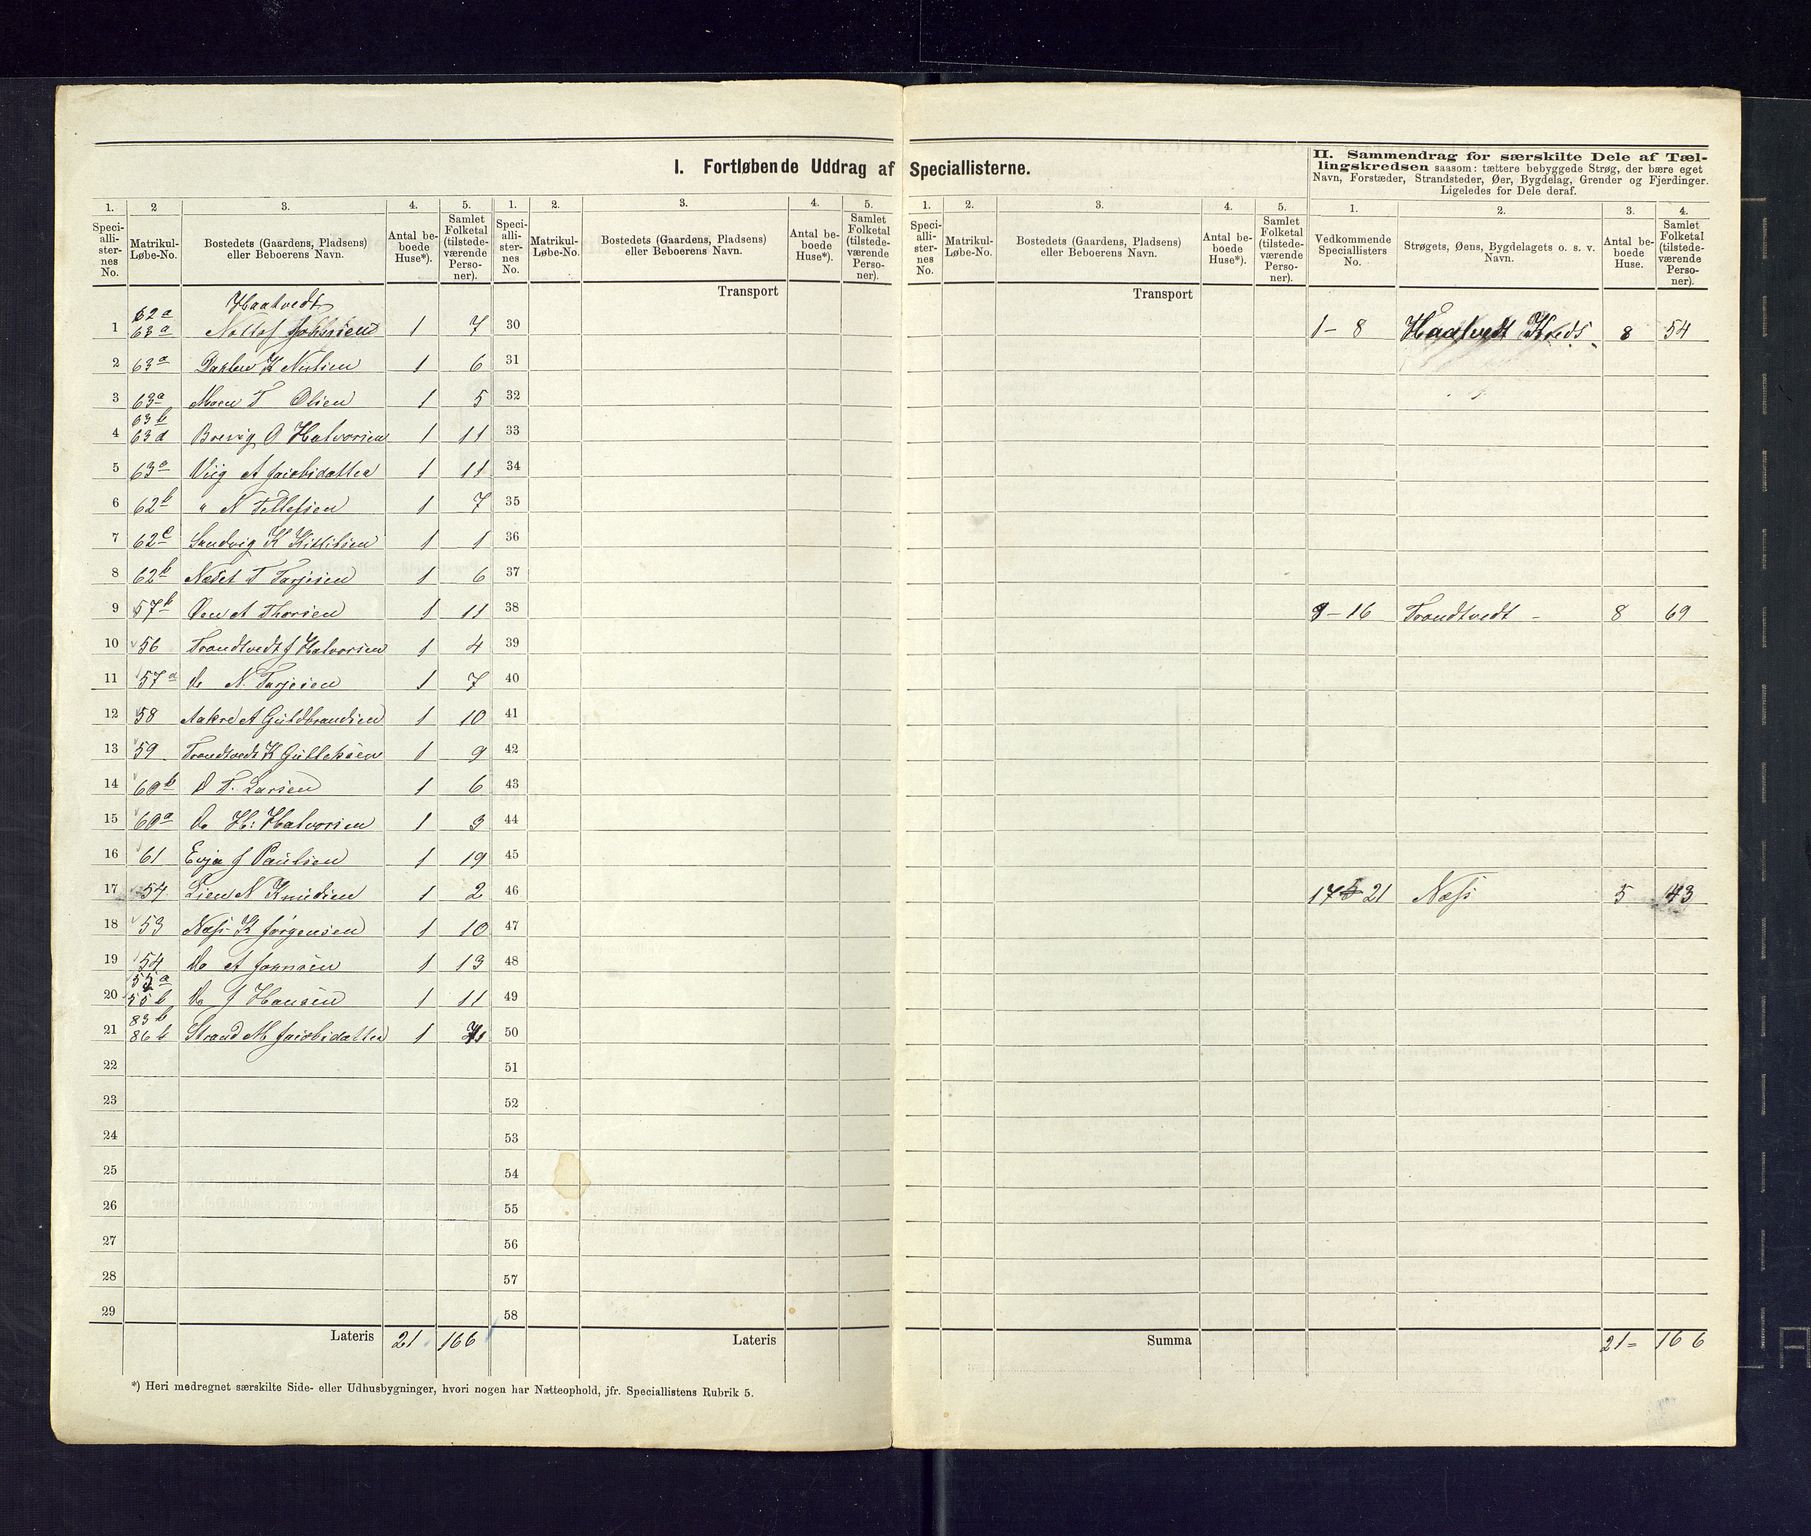 I. Fortløbende Uddrag af Speciallisterne.
II. Sammendrag for særskilte Dele af Tæl-
lingskredsen saasom: tættere bebyggede Strøg, der bære eget
Navn, Forstæder, Strandsteder, Øer, Bygdelag, Grender og Fjerdinger.
Ligeledes for Dele deraf.
1. 2 3. 4. 5. 1. 2. 3. 4. 5. 1. 2. 3. 4. 5. 1. 2. 3. 4.
Speciallisternes No. Matrikul-Løbe-No. Bostedets (Gaardens, Pladsens) eller Beboerens Navn. Antal beboede Huse*). Samlet Folketal (tilstedeværende Personer).
Speciallisternes No. Matrikul-Løbe-No. Bostedets (Gaardens, Pladsens) eller Beboerens Navn. Antal beboede Huse*). Samlet Folketal (tilstedeværende Personer).
Speciallisternes No. Matrikul-Løbe-No. Bostedets (Gaardens, Pladsens) eller Beboerens Navn. Antal beboede Huse*). Samlet Folketal (tilstedeværende Personer).
Vedkommende Speciallisters No. Strøgets, Øens, Bygdelagets o. s. v. Navn. Antal beboede Huse. Samlet Folketal (tilstedeværende Personer).
Transport Transport
62a Haatvedt
1 63a 1 7 30 1-8 Haatvedt Kreds 8 54
2 63a K Nilsen 1 6 31
3 63a Moen T Olsen 1 5 32
63b
4 63d Brevig O Halvorsen 1 11 33
5 63a Viig A Jacobsdatter 1 11 34
6 62b " N Tellefsen 1 7 35
7 62c Sandvig K Kittilsen 1 1 36
8 62b Næset T Tarjesen 1 6 37
9 57b Øen A Thorsen 1 11 38 9-16 Trondtvedt - 8 69
10 56 Trondtvedt J Halvorsen 1 4 39
11 57a Do N. Tarjesen 1 7 40
12 58 Aakre A Guldbrandsen 1 10 41
13 59 Trondtvedt K Gulleksen 1 9 42
14 60b D T. Larsen 1 6 43
15 60a Do H: Halvorsen 1 3 44
16 61 Evja J Paulsen 1 19 45
17 54 Lien N Knudsen 1 2 46 17 21 Næss 5 43
18 53 Næss K Jørgensen 1 10 47
19 54 Do A Johnsen 1 13 48
55a
20 55b Do J Hansen 1 11 49
83b
21 86b Strand M Jacobsdatter 1 7 50
22 51
23 52
24 53
25 54
26 55
27 56
28 57
29 58
Lateris 21. 166 Lateris Summa 21= 166
*) Heri medregnet særskilte Side- eller Udhusbygninger, hvori nogen har Natteophold, jfr. Speciallistens Rubrik 5.